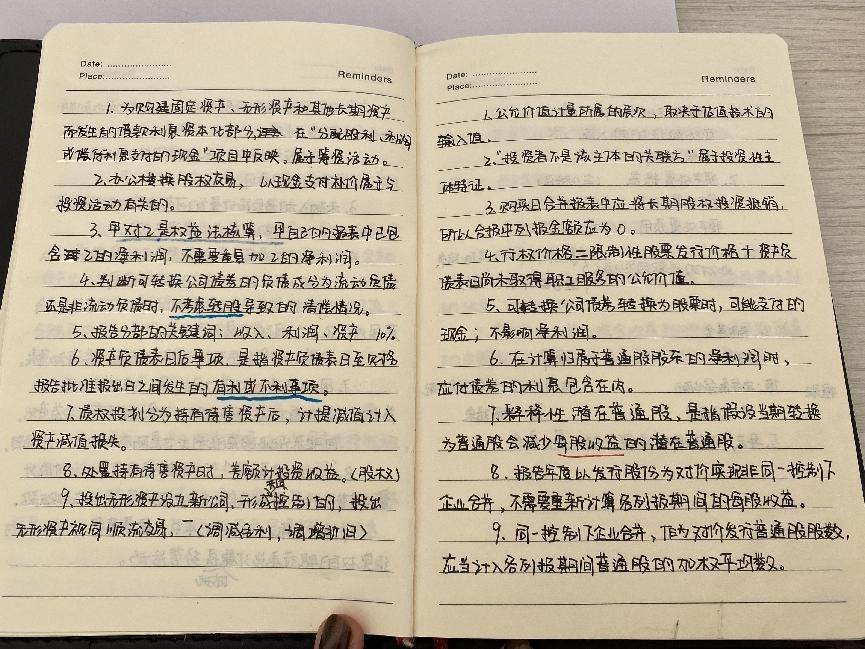 Date: ........................
Place:........................
Reminders
1. 为购建固定资产、无形资产和其他长期资产
而发生的借款利息资本化部分 在"分配股利、利润
或偿付利息支付的现金"项目中反映。属于筹资活动。
2. 办公楼换股权交易，以现金支付补价属于与
投资活动有关的。
3. 甲对乙是权益法核算，甲自己的报表中已包
含乙的净利润，不需要单独加乙的净利润。
4. 判断可转换公司债券的负债成分为流动负债
还是非流动负债时，不考虑转股导致的清偿情况。
5. 报告分部的关键词：收入；利润、资产 10%
6. 资产负债表日后事项，是指资产负债表日至财务
报告批准报出日之间发生的有利或不利事项。
7. 债权投划分为持有待售资产后，计提减值计入
资产减值损失。
8. 处置持有待售资产时，差额计投资收益。(股权)
9. 投出无形资产设立新公司，形成控制的，投出
无形资产视同顺流交易。(调减净利，调增折旧)
Date: ........................
Place:........................
Reminders
1. 公允价值计量所属的层次，取决于估值技术的
输入值。
2. "投资者不是该主体的关联方"属于投资性主
体特征。
3. 购买日合并报表中应将长期股权投资抵销，
所以合报中列报金额应为0。
4. 行权价格=限制性股票发行价格+资产负
债表日尚未取得职工服务的公允价值。
5. 可转换公司债券转换为股票时，可能支付的
现金；不影响净利润。
6. 在计算归属于普通股股东的净利润时，
应付债券的利息包含在内。
7. 稀释性潜在普通股，是指假设当期转换
为普通股会减少每股收益的潜在普通股。
8. 报告年度以发行股份为对价实现非同一控制下
企业合并，不需要重新计算各列报期间的每股收益。
9. 同一控制下企业合并，作为对价发行普通股股数，
应当计入各列报期间普通股的加权平均数。